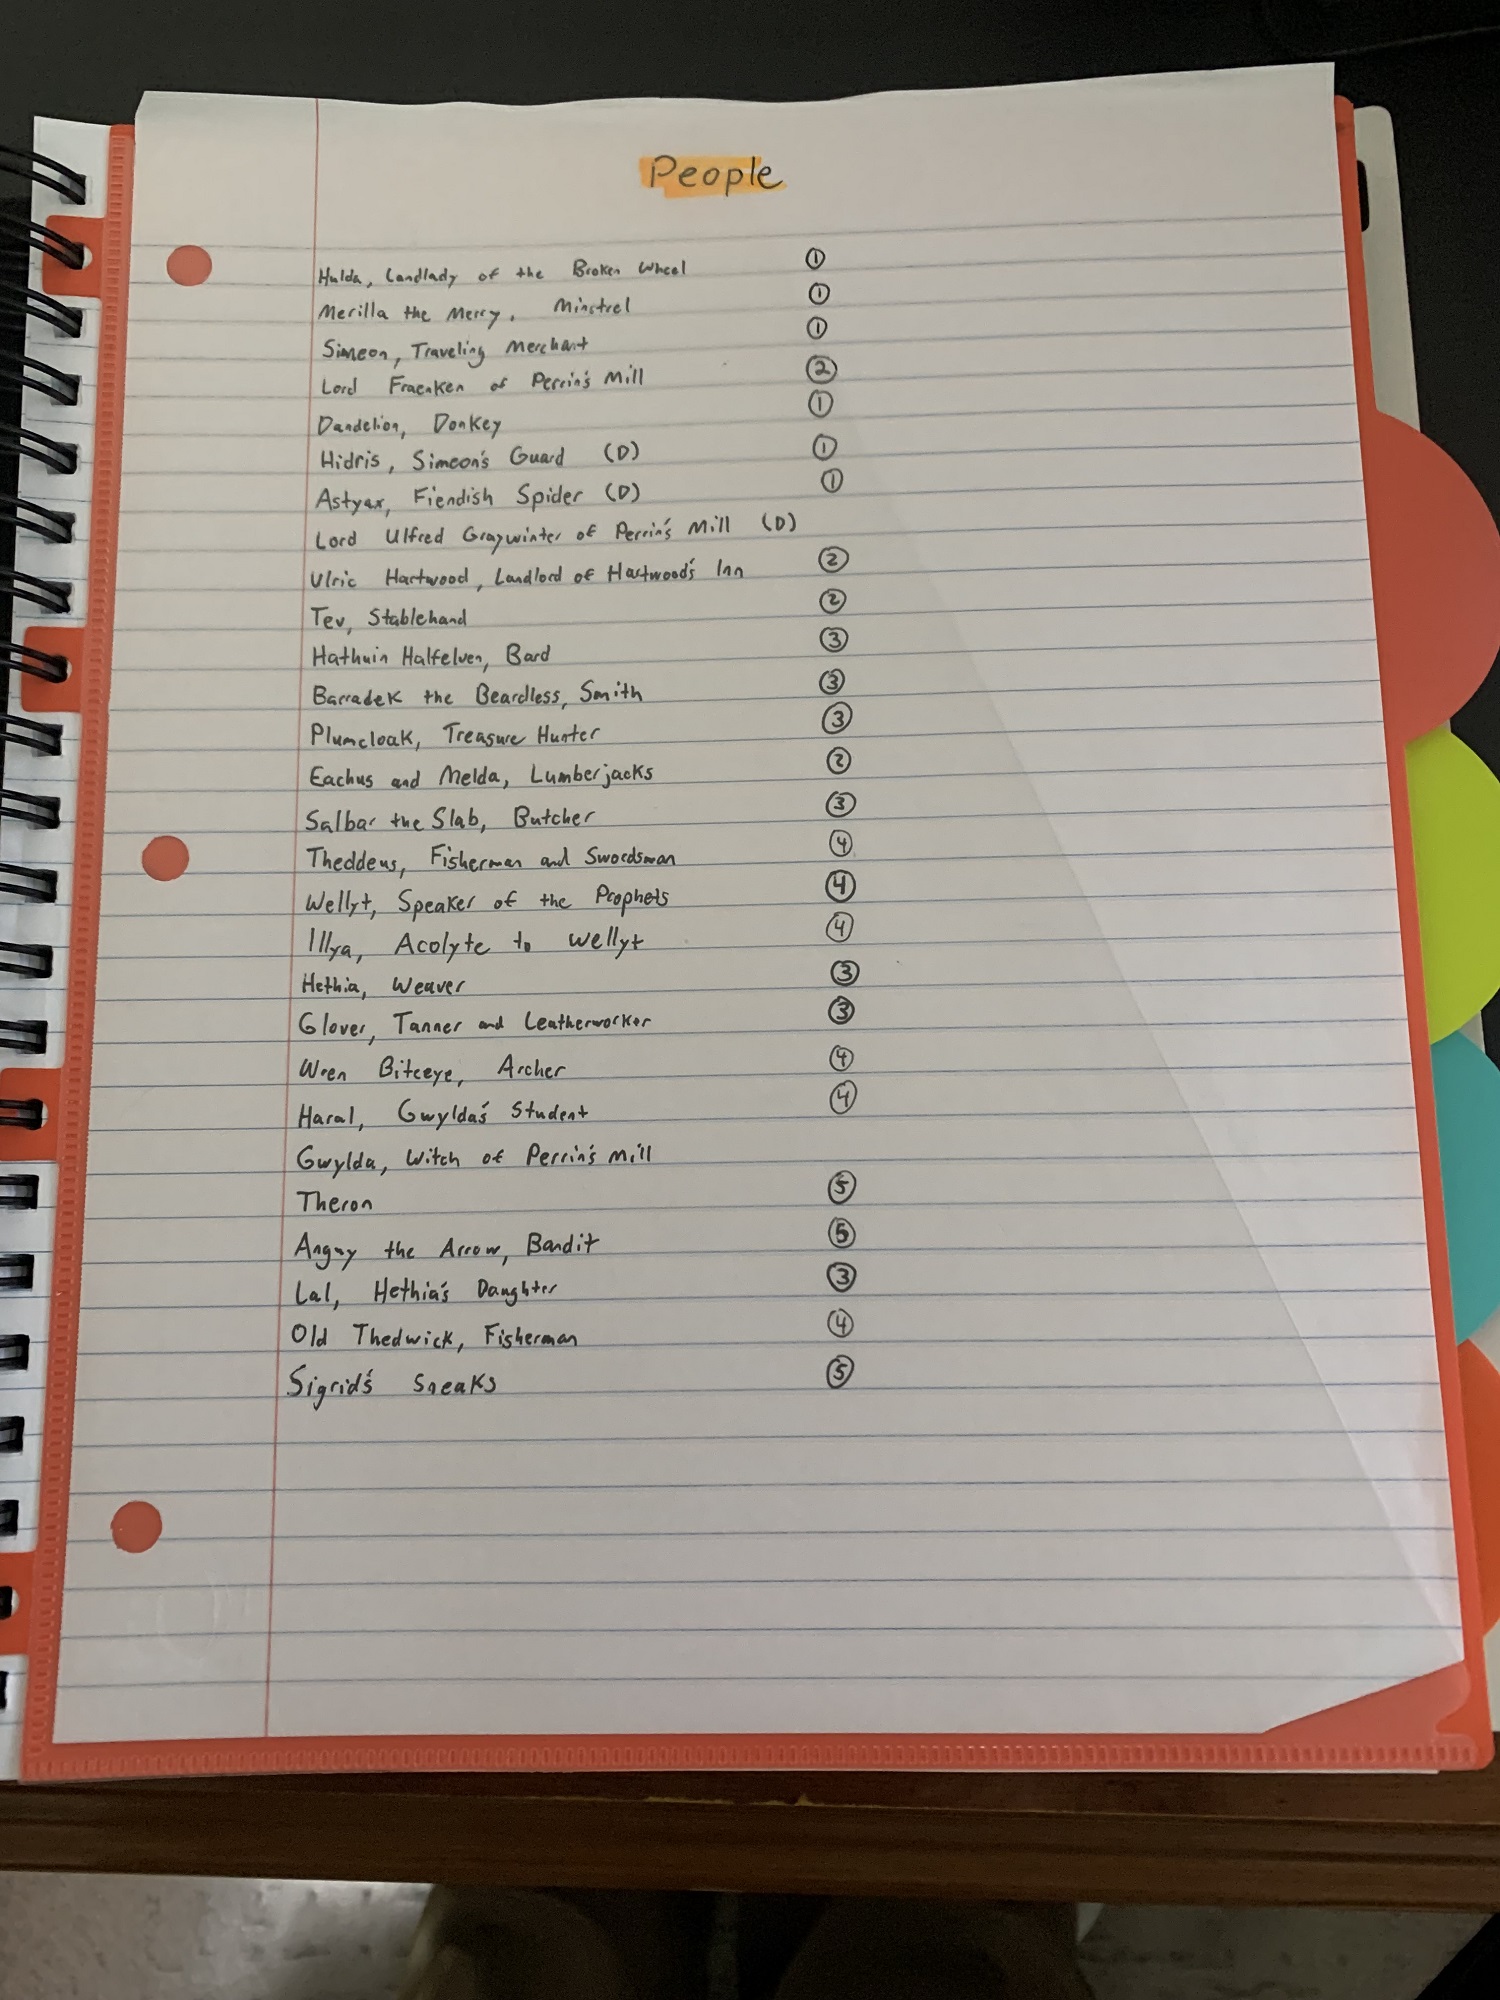 People
Hulda, Landlady of the Broken Wheel ①
Merilla the Mercy, Minstrel ①
Simeon, Traveling Merchant ①
Lord Fraenken of Perrin's Mill ②
Dandelion, Donkey ①
Hidris, Simeon's Guard (D) ①
Astyax, Fiendish Spider (D) ①
Lord Ulfred Graywinter of Perrin's Mill (D)
Ulric Hartwood, Landlord of Hartwood's Inn ②
Tev, Stablehand ②
Hathuin Halfelven, Bard ③
Barradek the Beardless, Smith ③
Plumcloak, Treasure Hunter ③
Eachus and Melda, Lumberjacks ②
Salbar the Slab, Butcher ③
Theddeus, Fisherman and Swordsman ④
Wellyt, Speaker of the Prophets ④
Illya, Acolyte to Wellyt ④
Hethia, Weaver ③
Glover, Tanner and Leatherworker ③
Wren Biteeye, Archer ④
Haral, Gwylda's Student ④
Gwylda, Witch of Perrin's Mill
Theron ⑤
Anguy the Arrow, Bandit ⑤
Lal, Hethia's Daughter ③
Old Thedwick, Fisherman ④
Sigrid's Sneaks ⑤